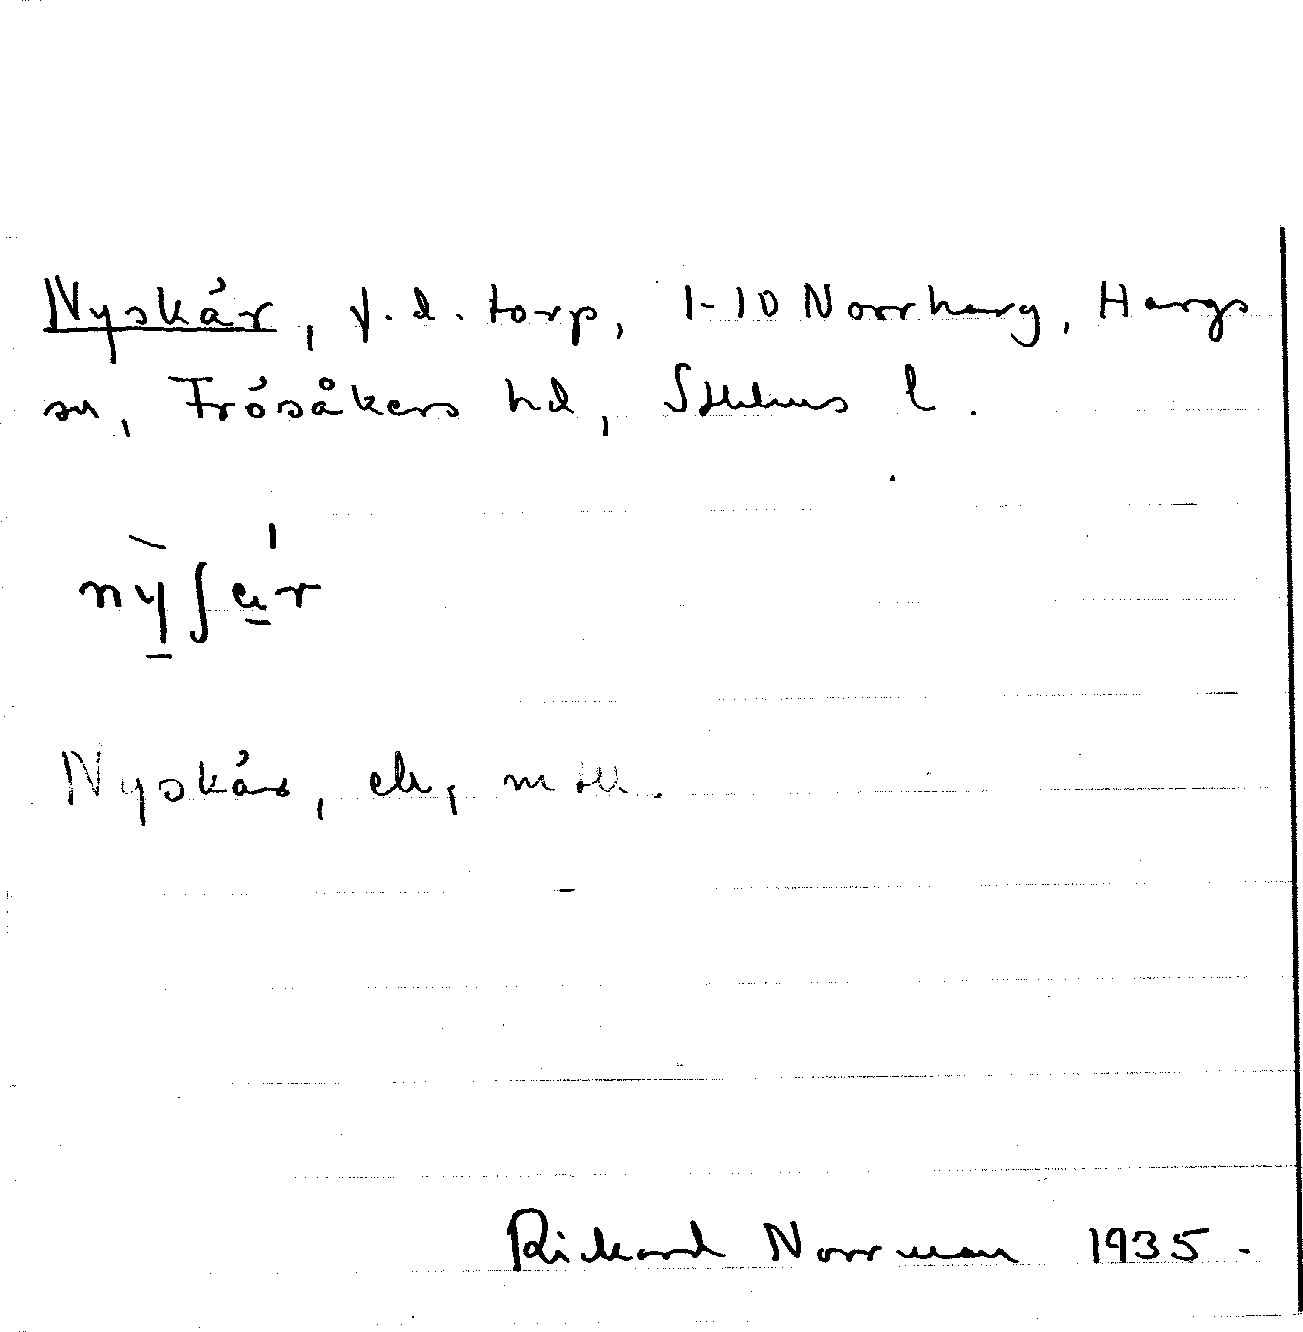 Nyskär, f.d. torp, 1-10 Norrharg, Hargs
sn, Frösåkers hd, Sthlms l.
nỳʃär
Nyskär, ek,
Rickard Norrman 1935.